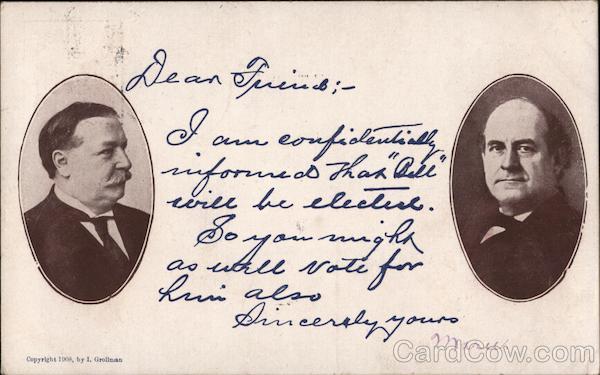 Dear Friend;-
I am confidentially
informed that "Bill"
will be elected.
So you might
as well vote for
him also
Sincerely yours
CardCow.com
Copyright 1908, by I. Grollman